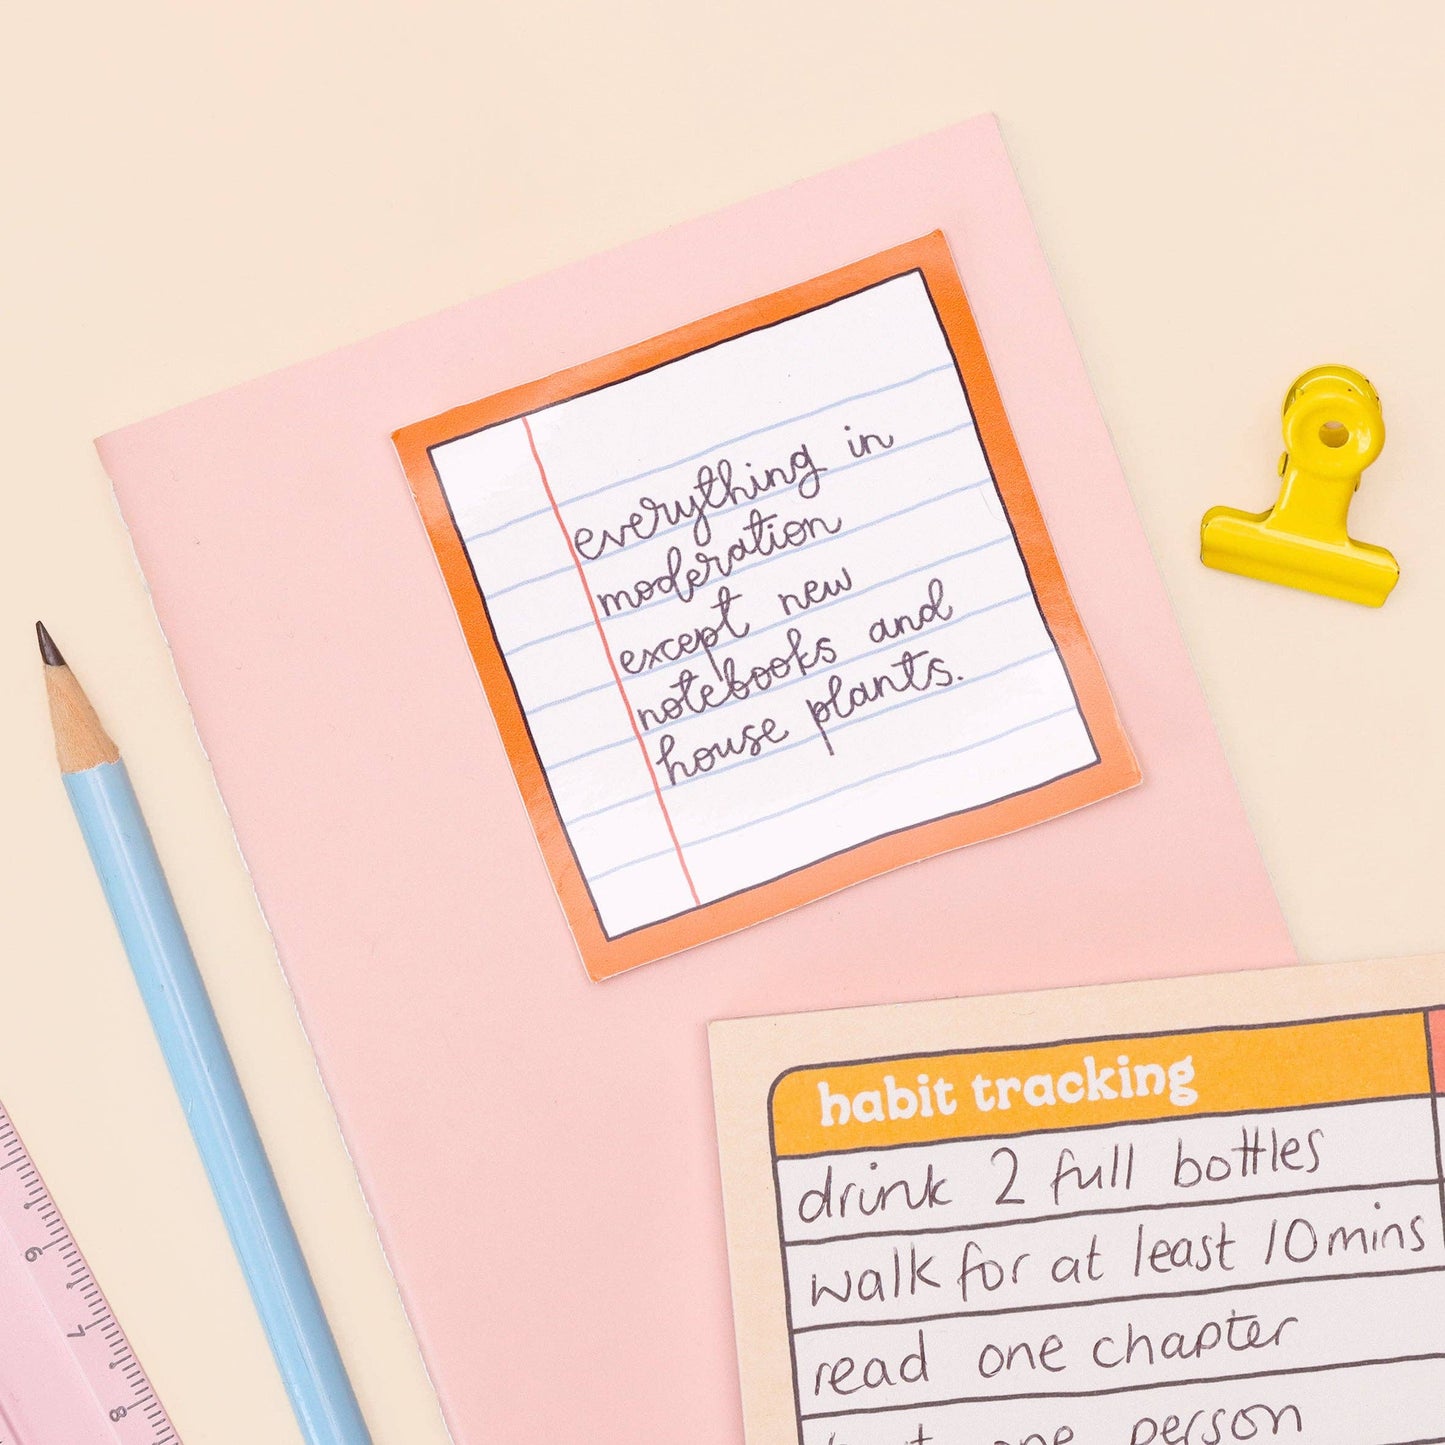 everything in
moderation
except new
notebooks and
house plants.
habit tracking
drink 2 full bottles
walk for at least 10 mins
read one chapter
one person
6
7
8